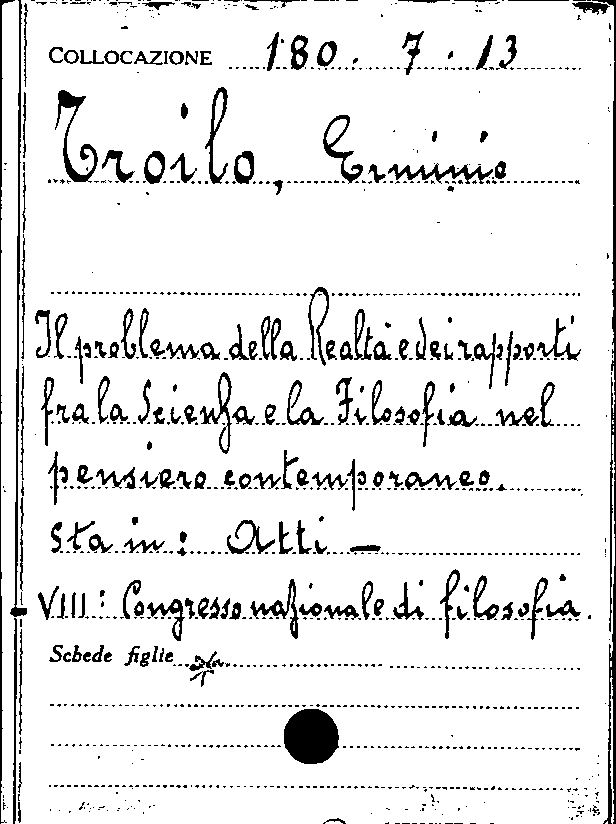 COLLOCAZIONE 180. 7. 13
Troilo, Erminio
Il problema della Realtà e dei rapporti
fra la Scienza e la Filosofia nel
pensiero contemporaneo.
Sta in: Atti —
VIII: Congresso nazionale di filosofia.
Schede figlie